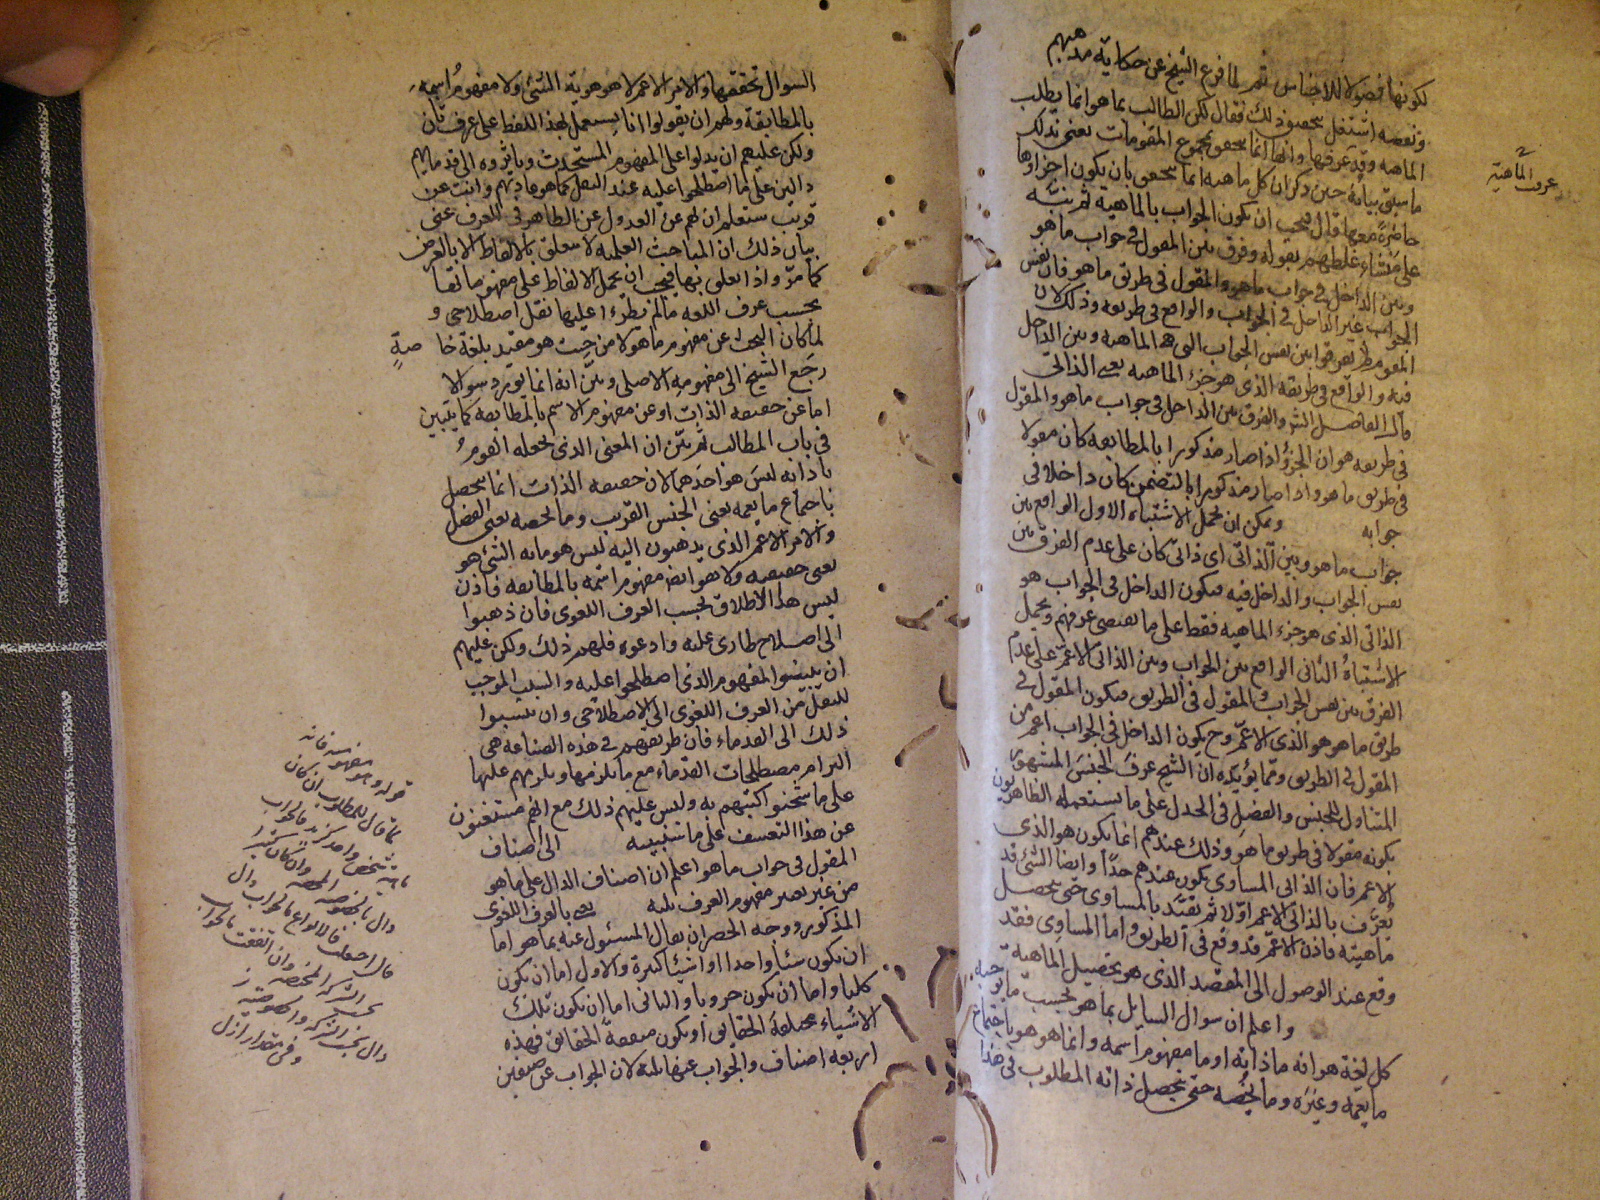 لكونها فصولا للاجناس ثم لما فرغ الشيخ عن حكاية مذهبهم
ونقضه اشتغل بتحقيق ذلك فقال لكن الطالب بما هو انما يطلب
الماهية وقد عرفتها وانها انما تتحقق بمجموع المقومات يعنى بذلك
ما سبق بيانه حين ذكر ان كل ماهية انما تتحقق بان يكون اجزاؤها
حاضرة معها قال فيجب ان يكون الجواب بالماهية ثم نبه
على منشاء غلطهم بقوله وفرق بين المقول فى جواب ما هو
وبين الداخل فى جواب ما هو والمقول فى طريق ما هو فان نفس
الجواب غير الداخل فى الجواب والواقع فى طريقه وذلك لان
القوم لم يفرقوا بين نفس الجواب التى هى الماهية وبين الداخل
فيه والواقع فى طريقه الذى هو جزء الماهية يعنى الذاتى
قال الفاضل الشارح والفرق بين الداخل فى جواب ما هو والمقول
فى طريقه هو ان الجزؤ اذا صار مذكورا بالمطابقة كان مقولا
فى طريق ما هو واذا صار مذكورا بالتضمن كان داخلا فى
جوابه ويمكن ان يحمل الاشتباه الاول الواقع بين
جواب ما هو وبين الذاتى اى ذاتى كان على عدم الفرق بين
نفس الجواب والداخل فيه فيكون الداخل فى الجواب هو
الذاتى الذى هو جزء الماهية فقط على ما يقتضى عرفهم ويحمل
الاشتباه الثانى الواقع بين الجواب وبين الذاتى الاعم على عدم
الفرق بين نفس الجواب والمقول فى الطريق فيكون المقول فى
طريق ما هو هو الذى الاعم وح يكون الداخل فى الجواب اعم من
المقول فى الطريق ومما يؤيده ان الشيخ عرف الجنس المشهور
المتناول للجنس والفصل فى الجدل على ما يستعمله الظاهريون
بكونه مقولا فى طريق ما هو وذلك عندهم انما يكون هو الذى
الاعم فان الذاتى المساوى يكون عندهم حدا وايضا الشئ قد
يعرف بالذاتى الاعم اولا ثم يقيد بالمساوى حتى يتحصل
ماهيته فاذن الاعم قد وقع فى الطريق واما المساوى فقد
وقع عند الوصول الى المقصد الذى هو تحصيل الماهية
واعلم ان سوال السايل بما هو بحسب ما يوجبه
كل لغة هو انه ما ذاته او ما مفهوم اسمه وانما هو هو باجتماع
ما يعمه وغيره وما يخصه حتى يتحصل ذاته المطلوب فى هذا
عرف الماهية
السوال تحققها والامر الاعم لا هو هوية الشئ ولا مفهوم اسمه
بالمطابقة ولهم ان يقولوا انا نستعمل هذا اللفظ على عرف ثان
ولكن عليهم ان يدلوا على المفهوم المستحدث وياثروه الى قدمايهم
دالين على ما اصطلحوا عليه عند النقل كما هو عادتهم وانت عن
قريب ستعلم ان لهم عن العدول عن الظاهر فى العرف غنى
بيان ذلك ان المباحث العلمية لا تتعلق بالالفاظ الا بالعرض
كما مر واذا تعلق بها فيجب ان يحمل الالفاظ على مفهوماتها
بحسب عرف اللغة ما لم يطرء عليها نقل اصطلاحى و
لما كان البحث عن مفهوم ما هو لا من حيث هو مقيد بلغة خاصة
رجع الشيخ الى مفهومه الاصلى وبين انه انما يورد سوالا
اما عن حقيقة الذات او عن مفهوم الاسم بالمطابقة كما يتبين
فى باب المطالب ثم بين ان المعنى الذى يجعله القوم
باذائه ليس هو احدهما لان حقيقة الذات انما تتحصل
باجتماع ما يعمه يعنى الجنس القريب وما يخصه يعنى الفصل
والامر الاعم الذى يذهبون اليه ليس هو ما به الشئ هو
يعنى حقيقته ولا هو ايضا مفهوم اسمه بالمطابقة فاذن
ليس هذا الاطلاق بحسب العرف اللغوى فان ذهبوا
الى اصطلاح طارى عليه وادعوه فلهم ذلك ولكن عليهم
ان يبينوا المفهوم الذى اصطلحوا عليه والسبب الموجب
للنقل من العرف اللغوى الى الاصطلاحى وان ينسبوا
ذلك الى القدماء فان طريقتهم فى هذه الصناعة هى
التزام مصطلحات القدماء مع ما يلزمها ويلزمهم عليها
على ما شحنوا كتبهم به وليس عليهم ذلك مع انهم مستغنون
عن هذا التعسف على ما سنبينه الى اصناف
المقول فى جواب ما هو اعلم ان اصناف الدال على ما هو
من غير تغيير مفهوم العرف ثلثة يعنى بالعرف اللغوى
المذكور ووجه الحصر ان يقال المسئول عنه بما هو اما
ان يكون شيئا واحدا او اشياء كثيرة والاول اما ان يكون
كليا واما ان يكون جزويا والثانى اما ان يكون تلك
الاشياء مختلفة الحقايق او يكون متفقة الحقائق فهذه
اربعة اصناف والجواب عنها ثلثة لان الجواب عن صنفين
قوله وهو مفهوم
كما قال المطلوب ان كان
شخص واحد كزيد فالجواب
دال بالخصوصية المحضة وان كان كثيرا
فالجواب دال
بحسب الشركة المحضة وان اتفقت فالجواب
دال بحسب الشركة والخصوصية